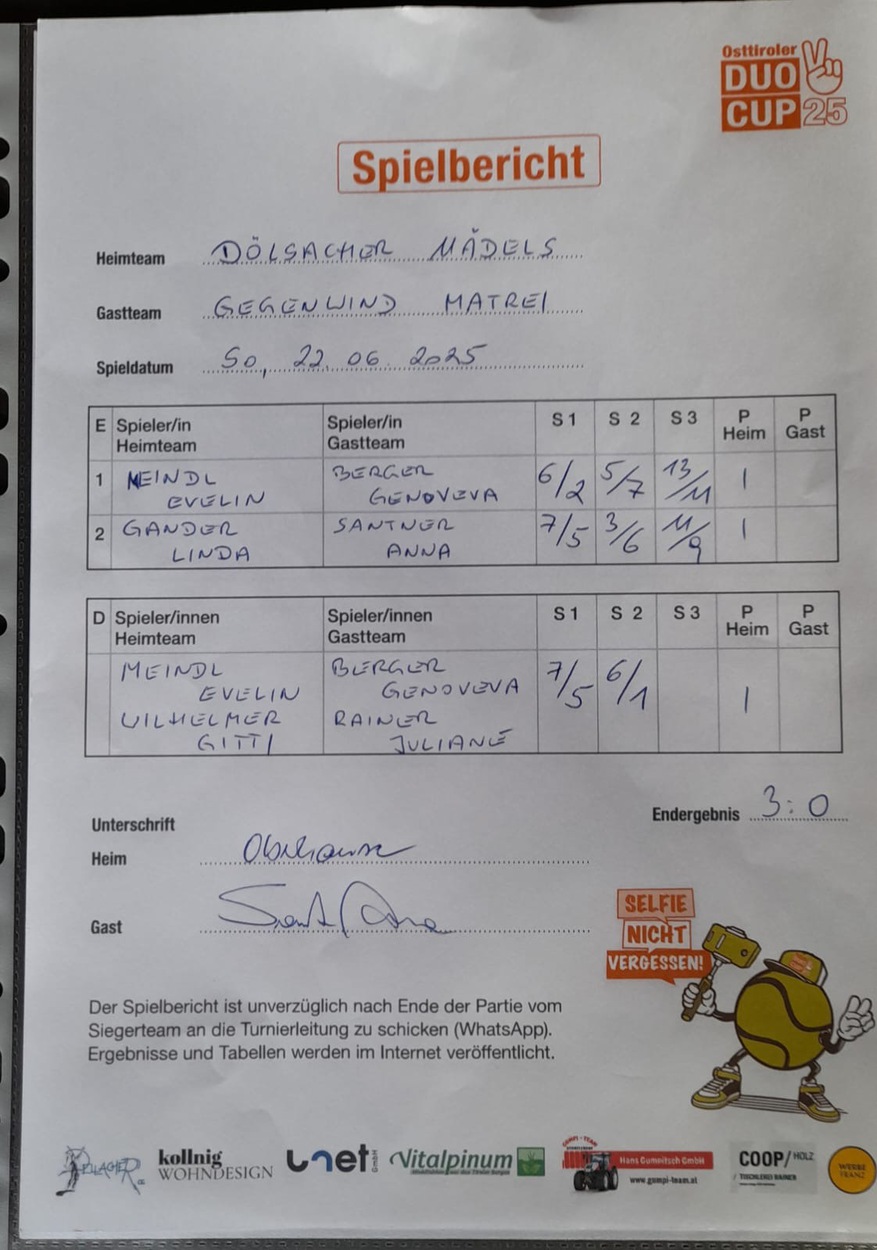 Osttiroler
DUO
CUP 25
Spielbericht
Heimteam DÖLSACHER MÄDELS
Gastteam GEGENWIND MATREI
Spieldatum So, 22.06.2025
E Spieler/in Heimteam Spieler/in Gastteam S 1 S 2 S 3 P Heim P Gast
1 MEINDL EVELIN BERGER GENOVEVA 6/2 5/7 13/11 1
2 GANDER LINDA SANTNER ANNA 7/5 3/6 11/9 1
D Spieler/innen Heimteam Spieler/innen Gastteam S 1 S 2 S 3 P Heim P Gast
MEINDL EVELIN BERGER GENOVEVA 7/5 6/1 1
WILHELMER GITTI RAINER JULIANE
Endergebnis 3:0
Unterschrift
Heim
Gast
SELFIE
NICHT
VERGESSEN!
Der Spielbericht ist unverzüglich nach Ende der Partie vom
Siegerteam an die Turnierleitung zu schicken (WhatsApp).
Ergebnisse und Tabellen werden im Internet veröffentlicht.
kollnig
WOHNDESIGN
unet GmbH
Vitalpinum
GUMPI-TEAM
Hans Gumpitsch GmbH
www.gumpi-team.at
COOP/HOLZ
/ TISCHLEREI RAINER
WERBE
FRANZ